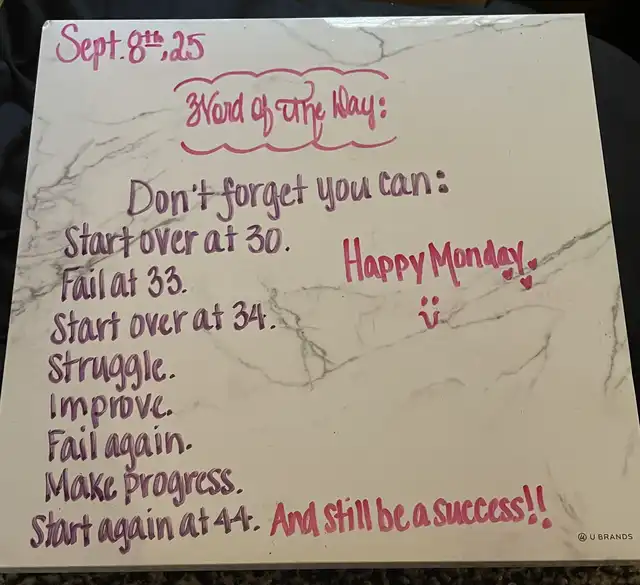 Sept. 8th, 25
Word of The Day:
Don't forget you can:
Start over at 30.
Fail at 33.
Start over at 34.
Struggle.
Improve.
Fail again.
Make progress.
Start again at 44. And still be a success!!
Happy Monday
U BRANDS